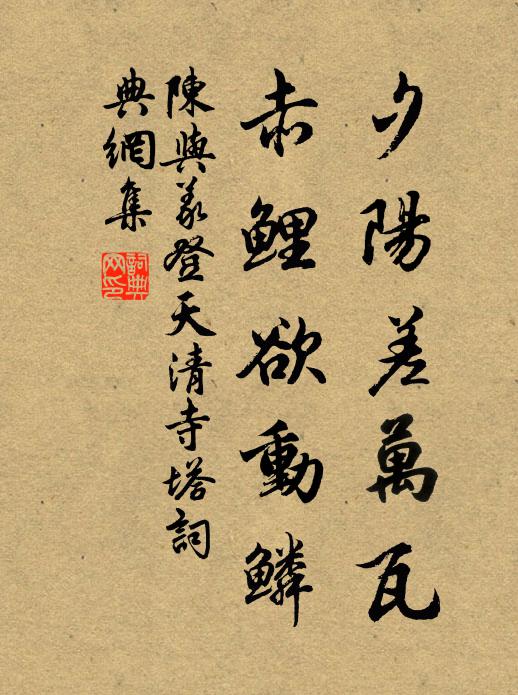 夕陽差萬瓦
赤鯉欲動鱗
陳與義登天清寺塔詞
典網集
詞典網印